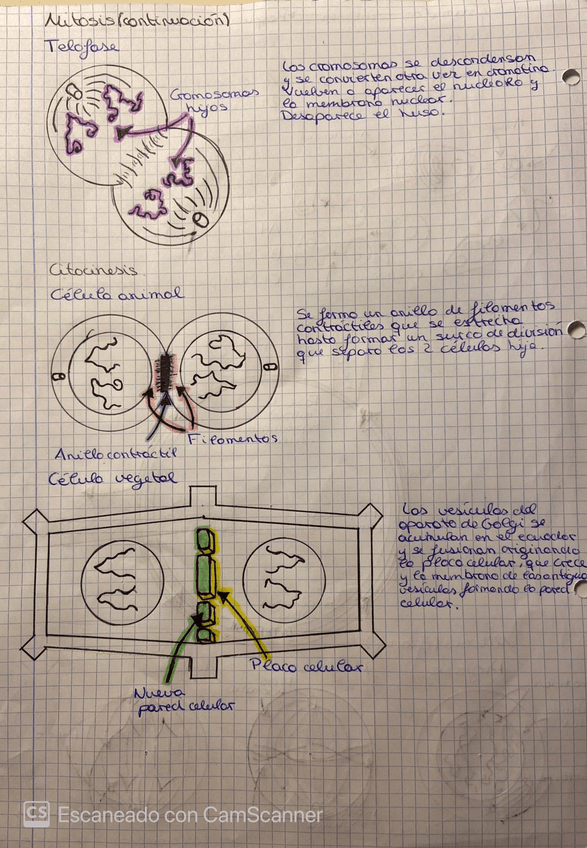 Mitosis (continuación)
Telofase
Los cromosomas se descondensan
y se convierten otra vez en cromatina.
Vuelven a aparecer el nucleolo y
la membrana nuclear.
Desaparece el huso.
Cromosomas
hijos
Citocinesis
Célula animal
Se forma un anillo de filamentos
contráctiles que se estrecha
hasta formar un surco de división
que separa las 2 células hija.
Filamentos
Anillo contráctil
Célula vegetal
Las vesículas del
aparato de Golgi se
acumulan en el ecuador
y se fusionan originando
la placa celular, que crece
y la membrana de las antiguas
vesículas formando la pared
celular.
Placa celular
Nueva
pared celular
CS Escaneado con CamScanner